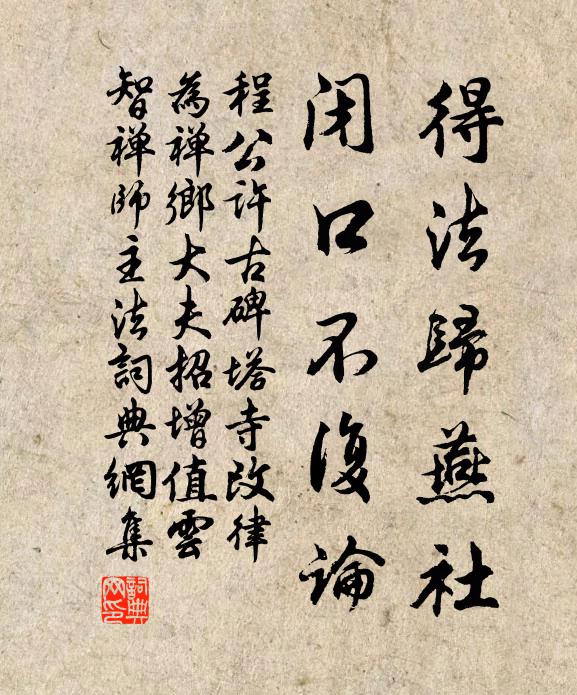 得法歸燕社
閉口不復論
程公許古碑塔寺改律
為禪鄉大夫招增值雲
智禪師主法詞典網集